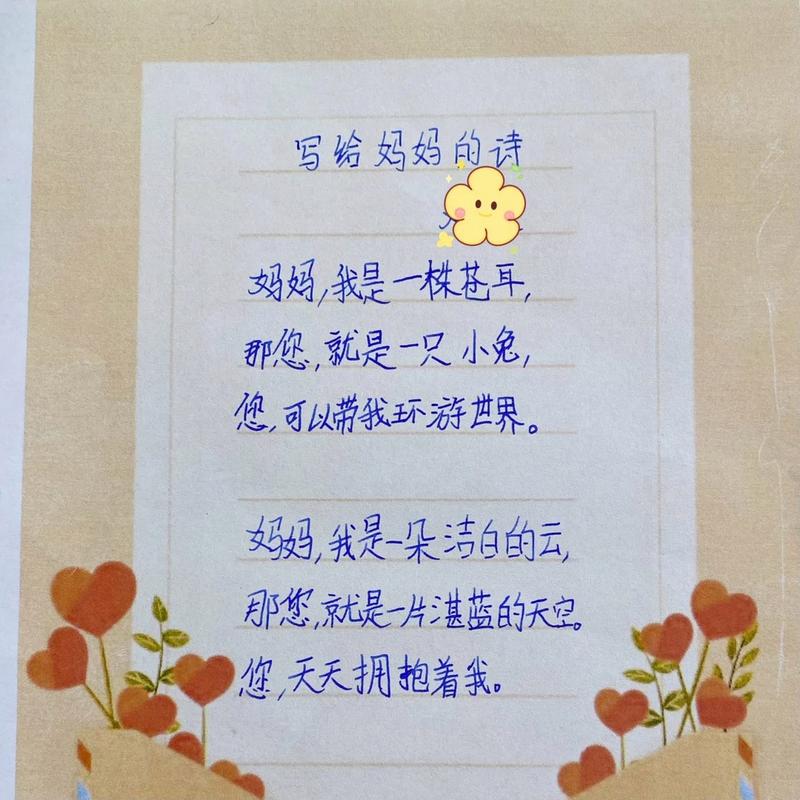 写给妈妈的诗
妈妈,我是一株苍耳,
那您,就是一只小兔,
您,可以带我环游世界。
妈妈,我是一朵洁白的云,
那您,就是一片湛蓝的天空。
您,天天拥抱着我。